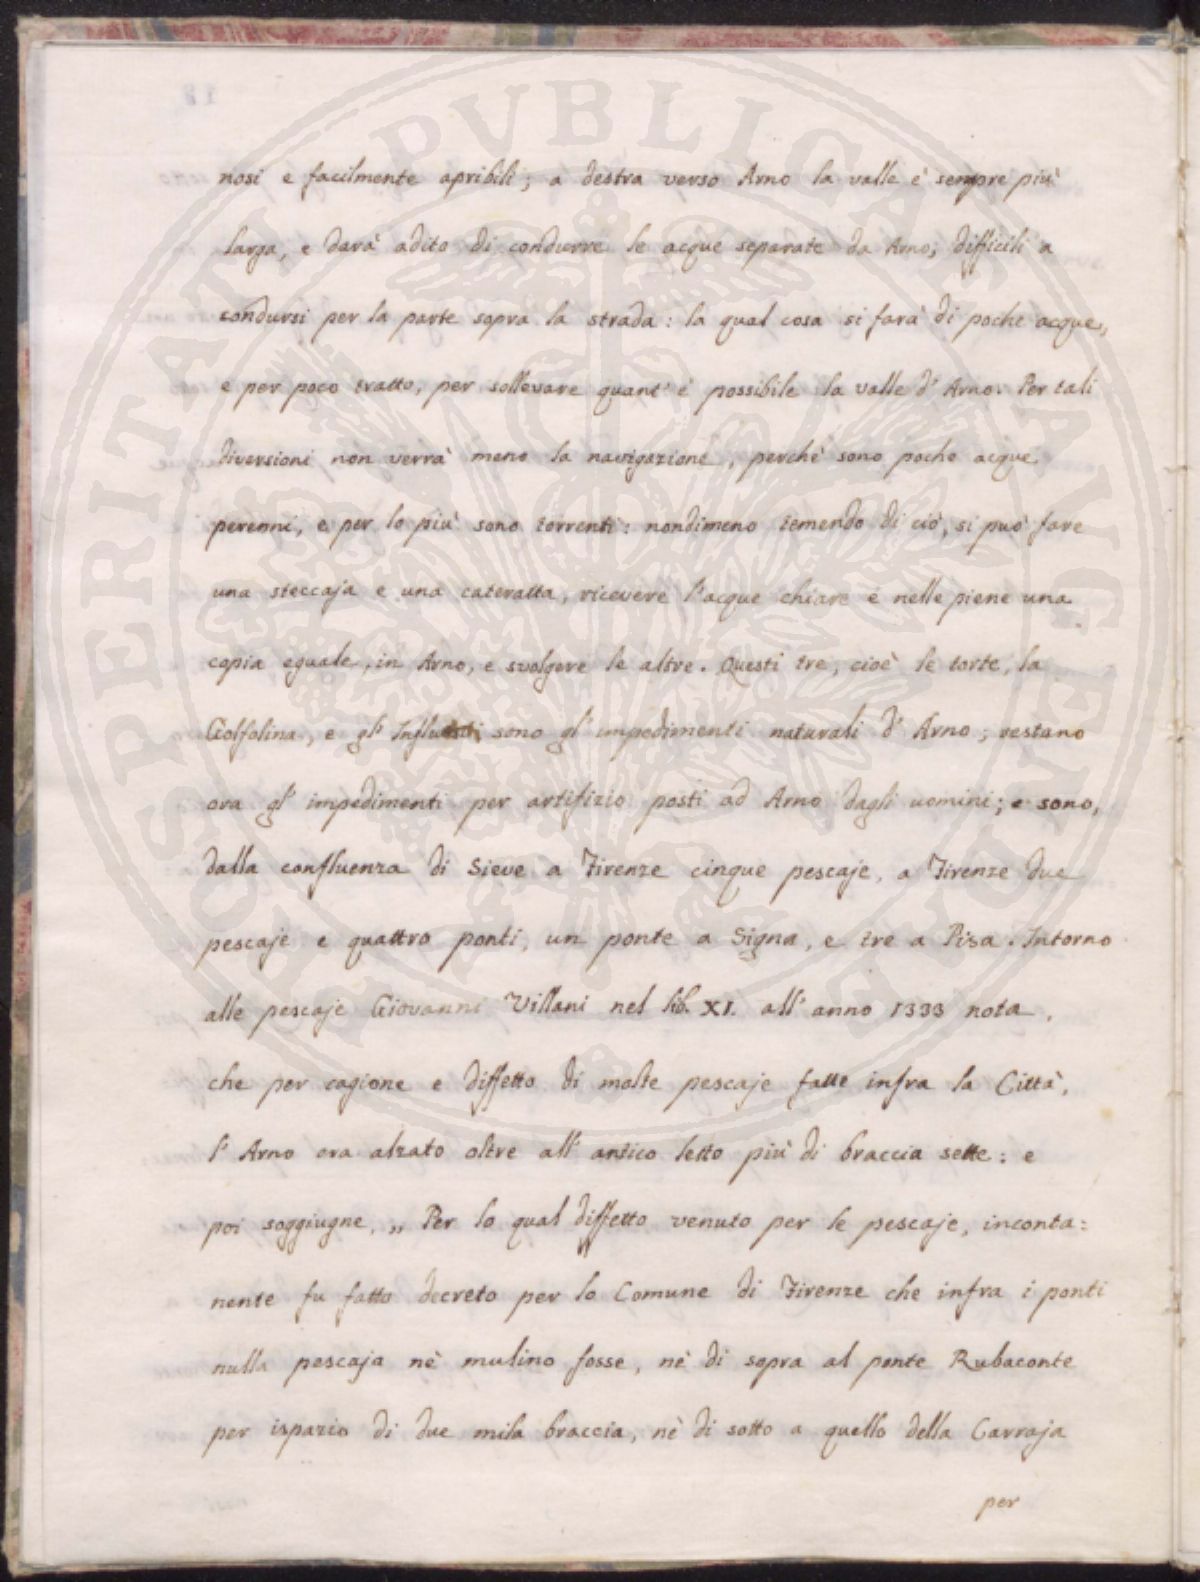 nosi e facilmente apribili; a destra verso Arno la valle è sempre più
larga, e darà adito di condurre le acque separate da Arno, difficili a
condursi per la parte sopra la strada: la qual cosa si farà di poche acque,
e per poco tratto, per sollevare quant' è possibile la valle d' Arno. Per tali
diversioni non verrà meno la navigazione, perchè sono poche acque
perenni, e per lo più sono torrenti: nondimeno temendo di ciò, si può fare
una steccaja e una cateratta, ricevere l'acque chiare e nelle piene una
copia eguale, in Arno, e svolgere le altre. Questi tre, cioè le torte, la
Golfolina, e gl' Influenti sono gl' impedimenti naturali d' Arno; restano
ora gl' impedimenti per artifizio posti ad Arno dagli uomini; e sono,
dalla confluenza di Sieve a Firenze cinque pescaje, a Firenze due
pescaje e quattro ponti, un ponte a Signa, e tre a Pisa. Intorno
alle pescaje Giovanni Villani nel lib. XI. all' anno 1333 nota,
che per cagione e diffetto di molte pescaje fatte infra la Città,
l' Arno era alzato oltre all' antico letto più di braccia sette: e
poi soggiugne, „ Per lo qual diffetto venuto per le pescaje, inconta=
nente fu fatto decreto per lo Comune di Firenze che infra i ponti
nulla pescaja nè mulino fosse, nè di sopra al ponte Rubaconte
per ispazio di due mila braccia, nè di sotto a quello della Carraja
per
PROSPERITATI PUBLICAE AUGENDAE